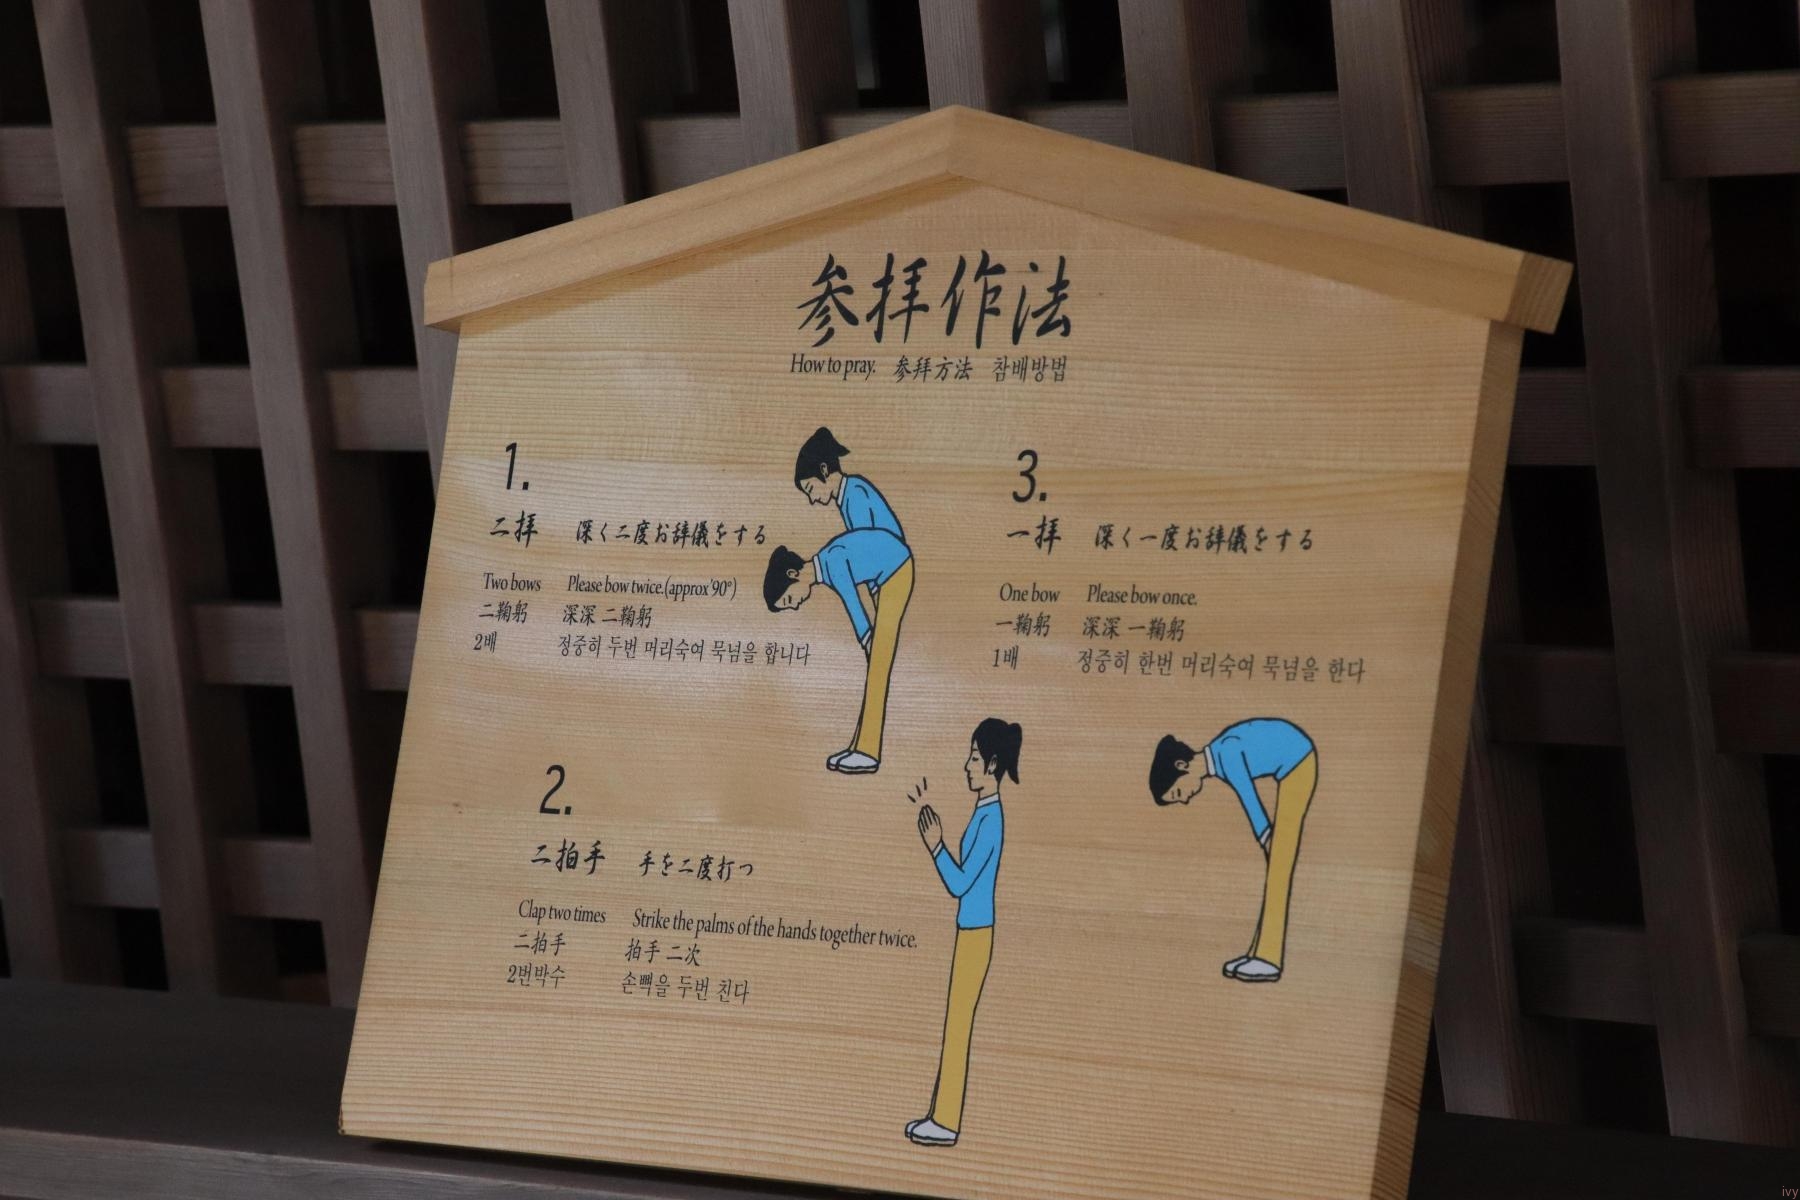 参拝作法
How to pray. 参拜方法 참배방법
1.
二拝 深く二度お辞儀をする
Two bows Please bow twice.(approx'90°)
二鞠躬 深深 二鞠躬
2배 정중히 두번 머리숙여 묵념을 합니다
2.
二拍手 手を二度打つ
Clap two times Strike the palms of the hands together twice.
二拍手 拍手 二次
2번박수 손뼉을 두번 친다
3.
一拝 深く一度お辞儀をする
One bow Please bow once.
一鞠躬 深深 一鞠躬
1배 정중히 한번 머리숙여 묵념을 한다
ivy